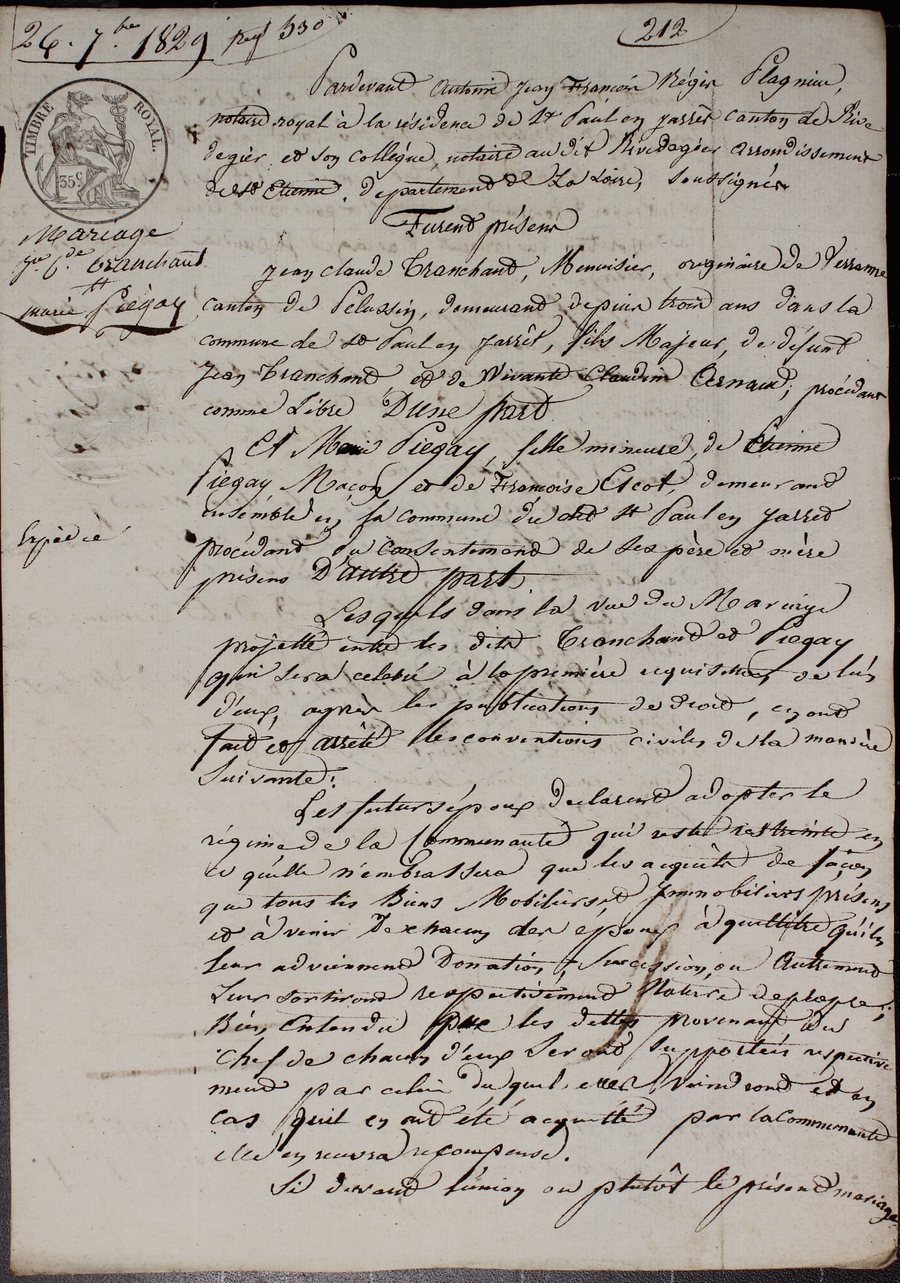 26. 7.bre 1829
212
TIMBRE ROYAL.
35c
Mariage
Jn Cde tranchant
et
marie Piégay
Expédié
Pardevant Antoine Jean François Régis Plagnieu,
notaire royal à la résidence de St Paul en jarrêt canton de Rive
degier et son collègue, notaire au dit Rivedegier arrondissement
de St Etienne. departement de La Loire, soussignés
Furent présens
Jean claude Tranchand, Menuisier, originaire de Verranne
canton de Pelussin, demeurant depuis trois ans dans la
commune de St Paul en Jarrêt, fils Majeur, de défunt
Jean Tranchand, et de Vivante Claudine Arnaud; procédant
comme Libre D'une part
Et Marie Piegay, fille mineure, de Etienne
Piégay Maçon et de Françoise Cicot, demeurand
ensemble en la commune du dit St Paul en Jarret
procédand du consentemand de ses père et mère
présens D'autre part
Lesquels dans la vue du Mariage
projetté entre les dits Tranchand et Piegay
qui sera celebré à la première requisition de l'un
d'eux, après les publications de droit, en ont
fait et arrêté les conventions civiles de la manière
Suivante:
Les futurs époux declarent adopter le
régime de la Communauté qui reste restreinte en
ce qu'elle n'embrassera que les acquêts de façon
que tous les Biens Mobiliers et Immobiliers présens
et à venir De chacun des époux à quel titre qu'ils
leur adviennend Donation, Succession, ou Autremend
Leur sortirond respectivemend Nature de propre;
Bien Entendu que les dettes provenant du
Chef de chacun d'eux seront supportées respective
mend par celui du quel elles viendrond et en
cas qu'il en ait été acquitté par la communauté
elle en recevra recompense.
Si devant l'union ou plutôt le présend mariage